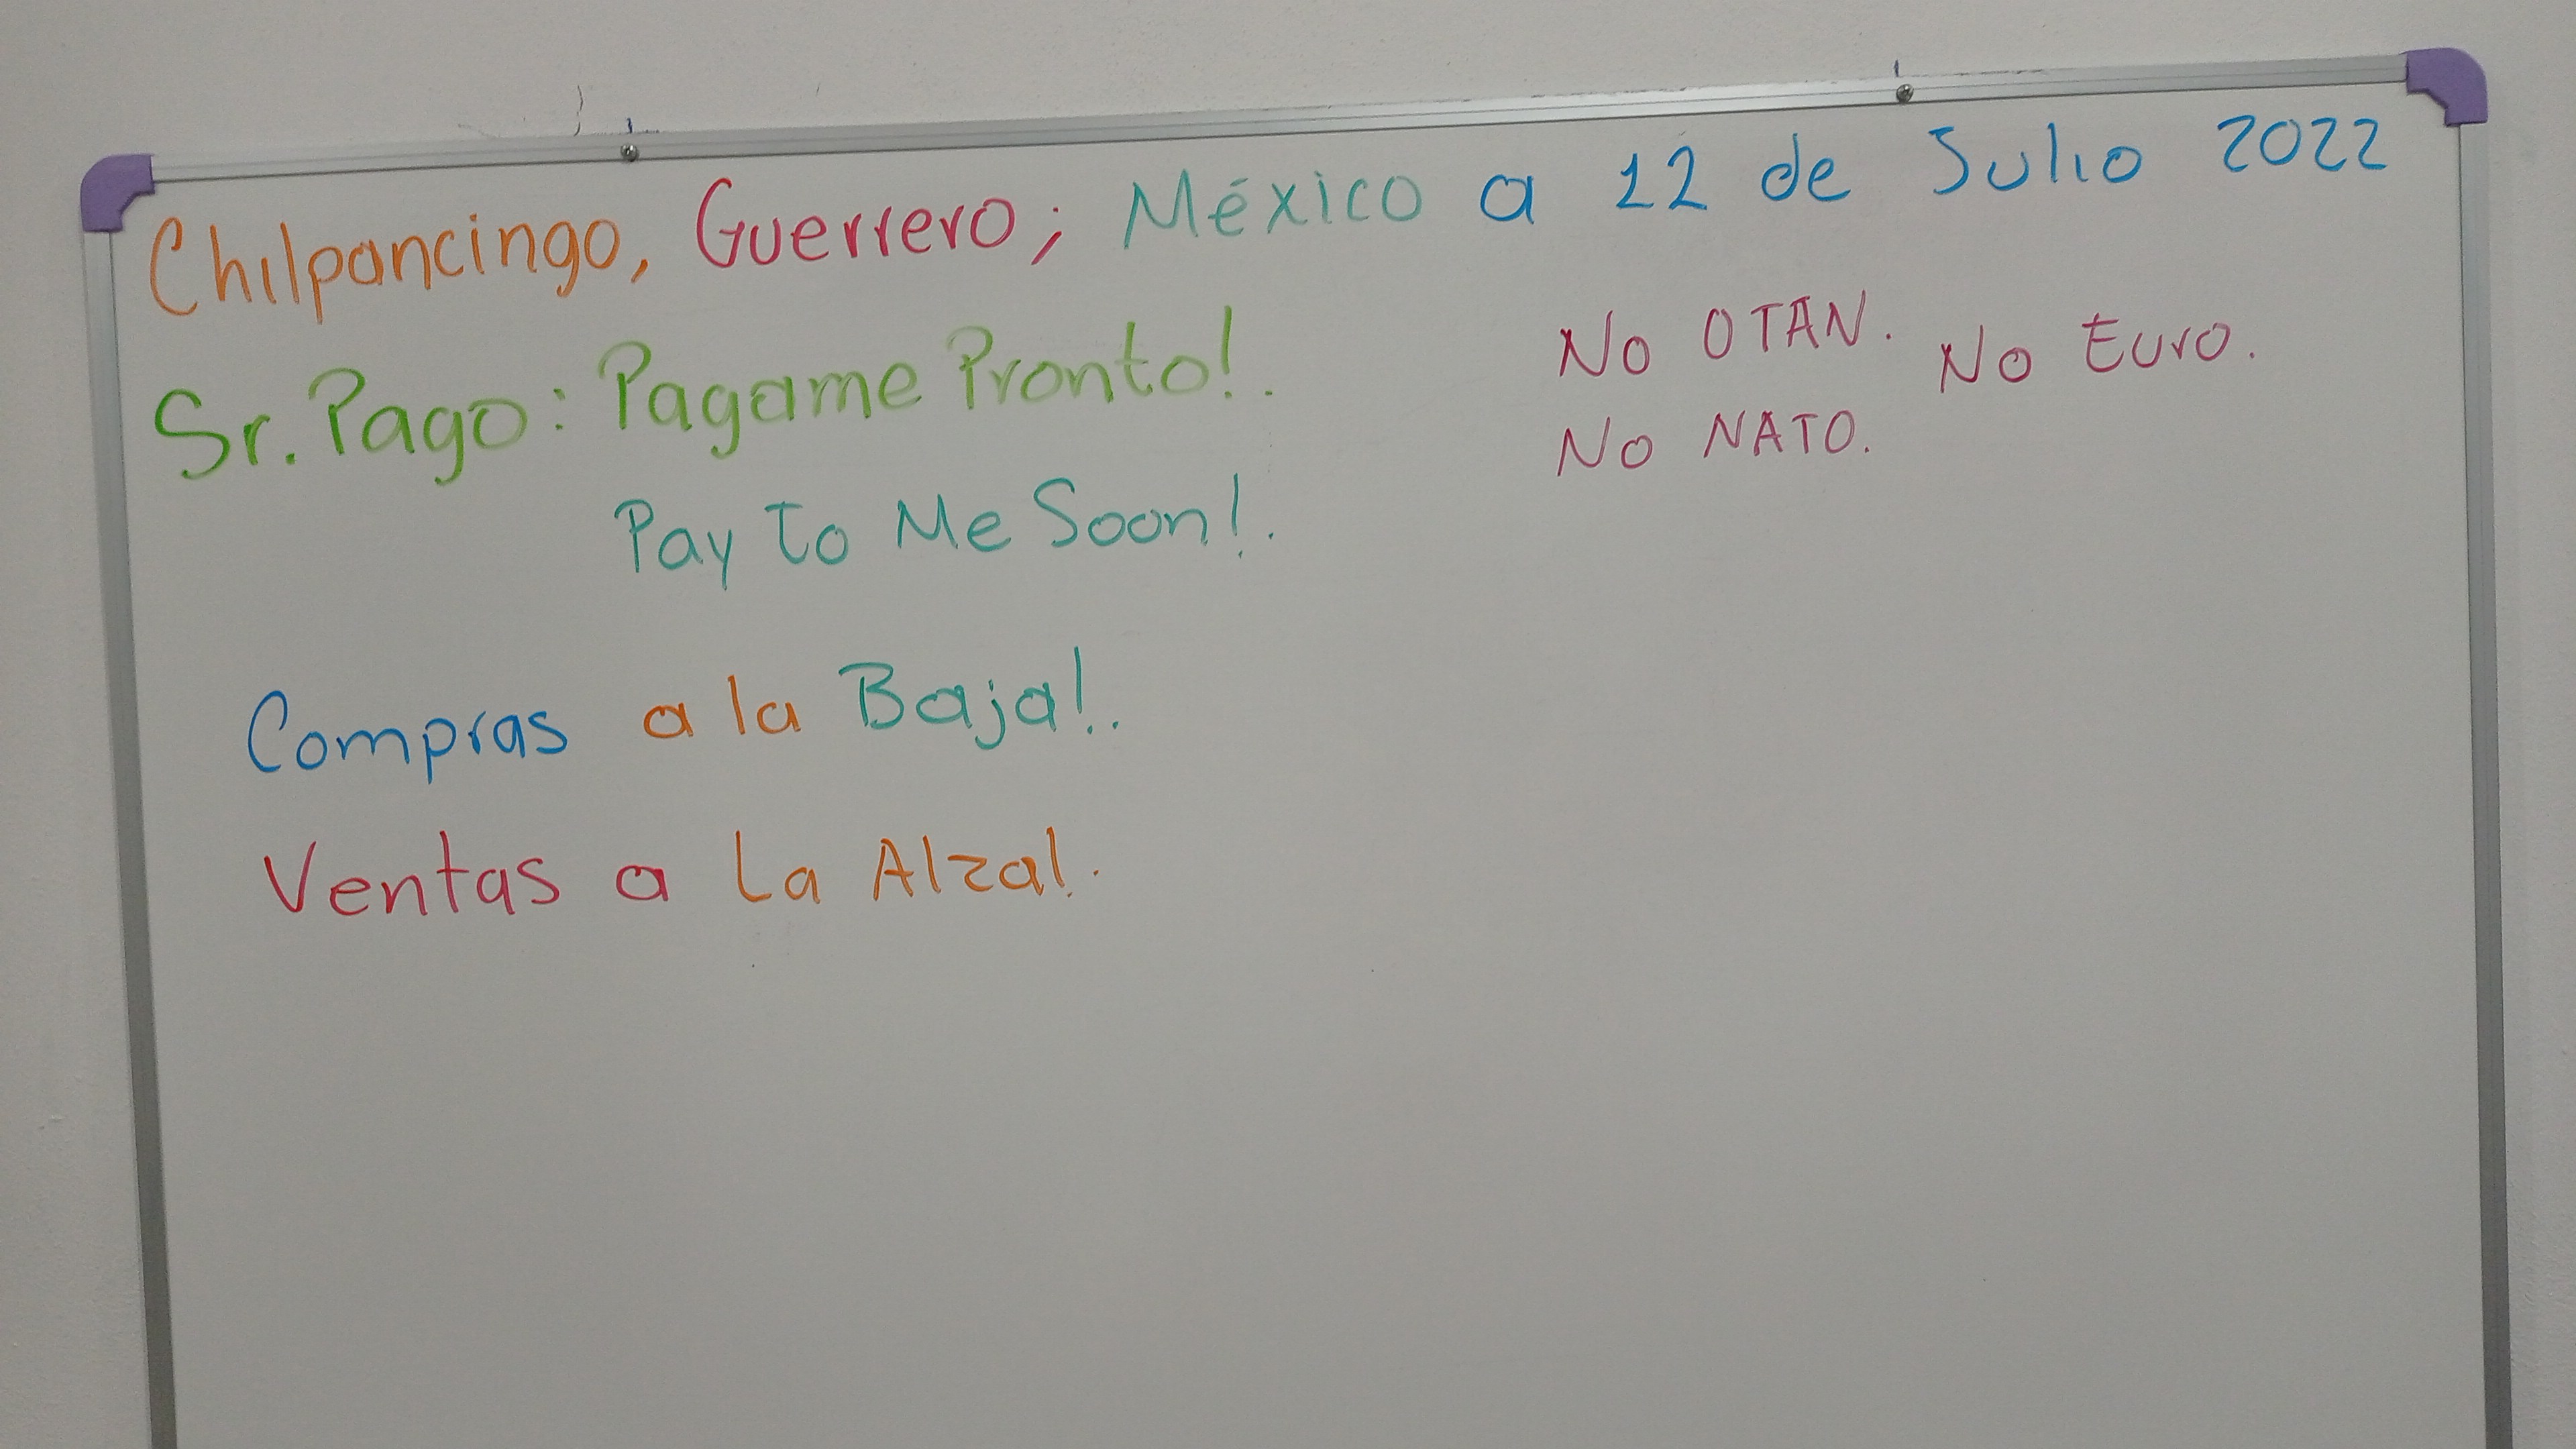 Chilpancingo, Guerrero; México a 12 de Julio 2022
Sr. Pago: Pagame Pronto!.
Pay to Me Soon!.
No OTAN. No Euro.
No NATO.
Compras a la Baja!.
Ventas a La Alza!.